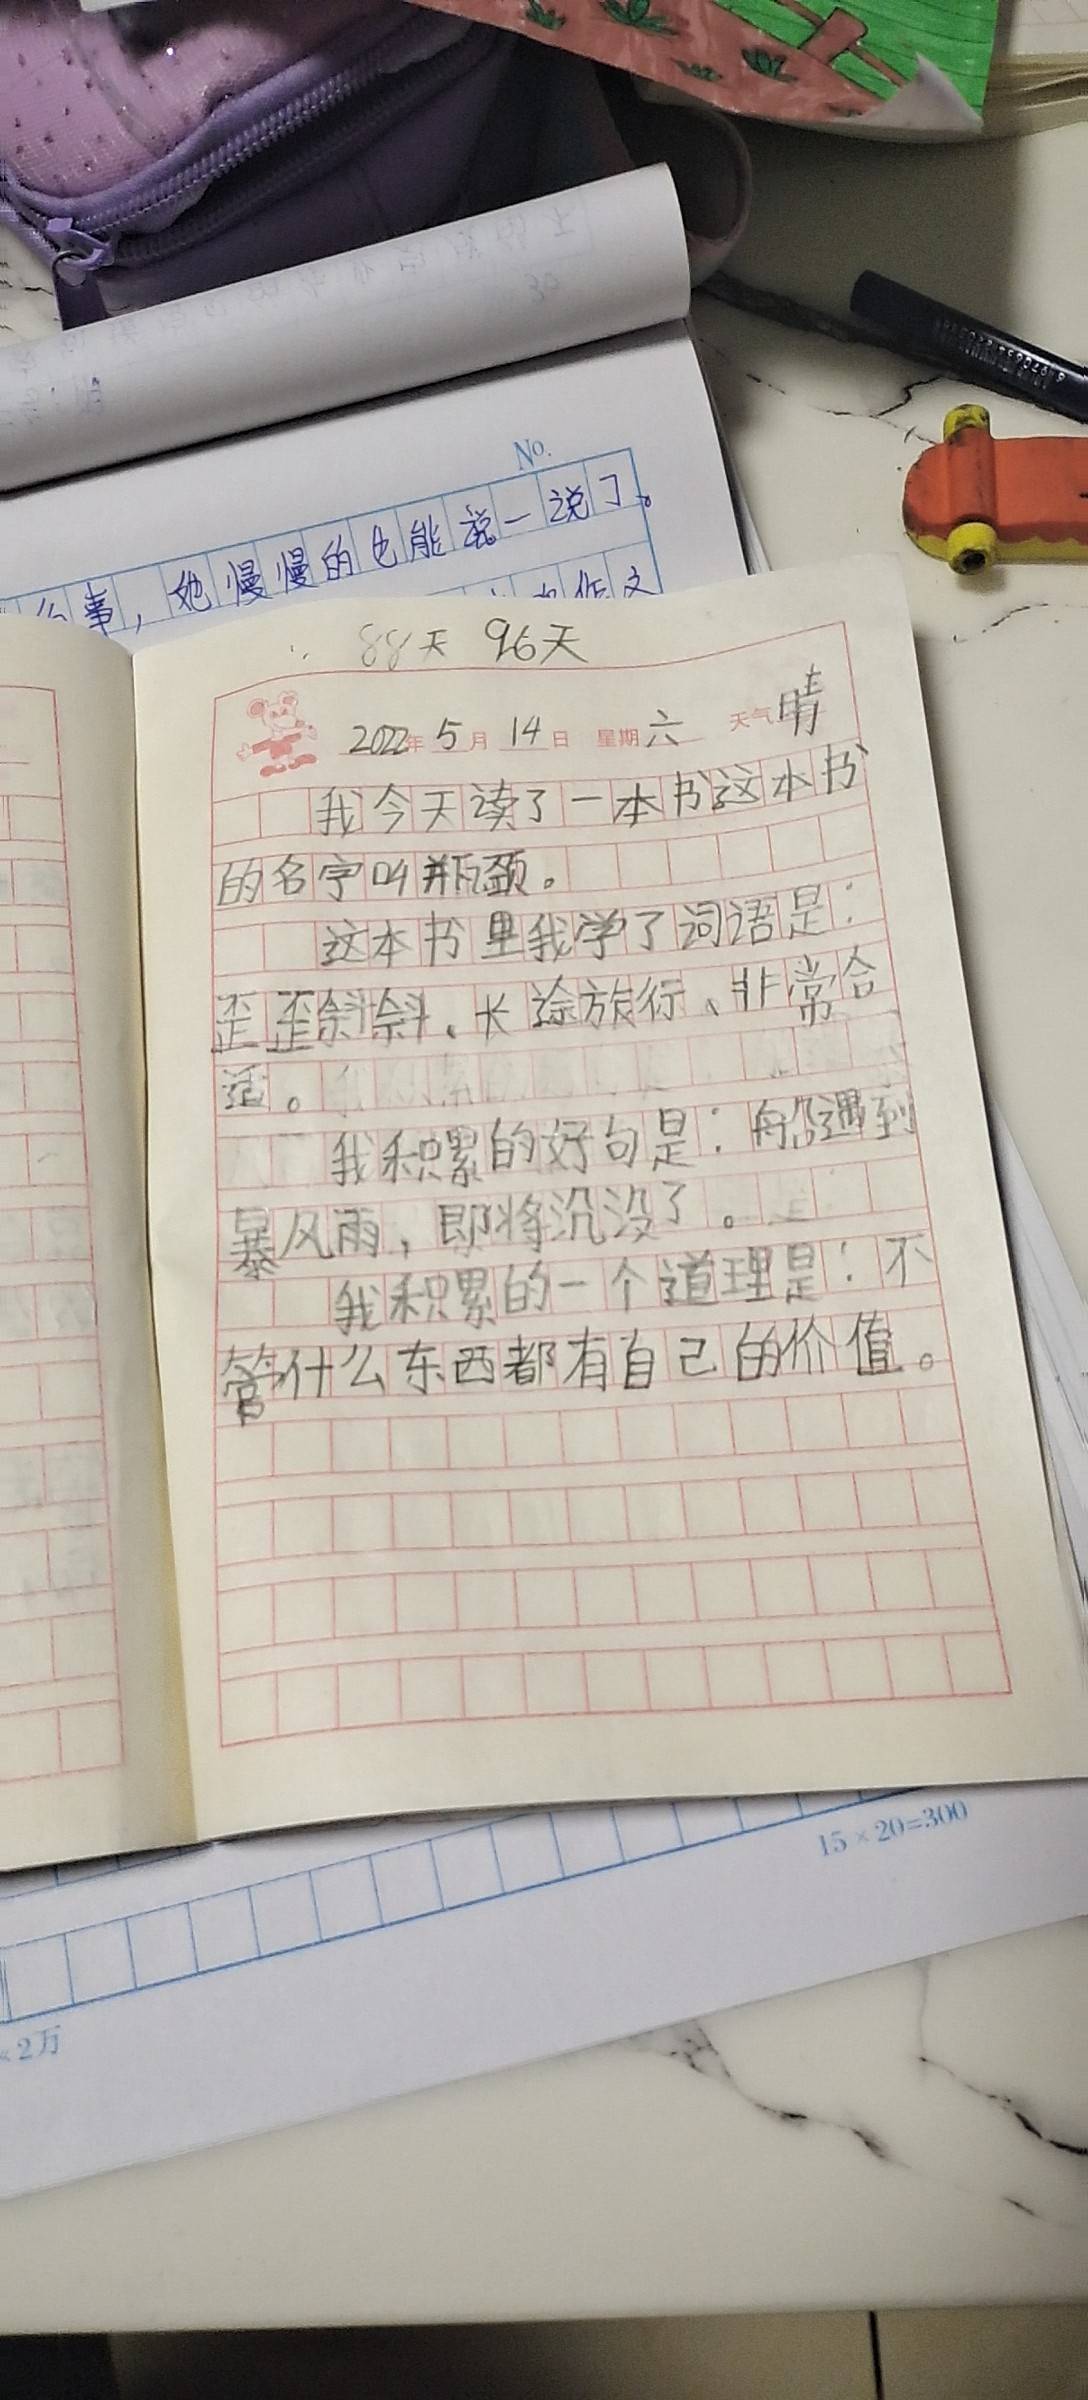 No.
么事，她慢慢的也能说一说了。
作文
88天 96天
2022年 5月 14日 星期六 天气晴
我今天读了一本书这本书
的名字叫瓶颈。
这本书里我学了词语是：
歪歪斜斜、长途旅行、非常合
适。
我积累的好句是：船遇到
暴风雨，即将沉没了。
我积累的一个道理是：不
管什么东西都有自己的价值。
15×20=300
×2万